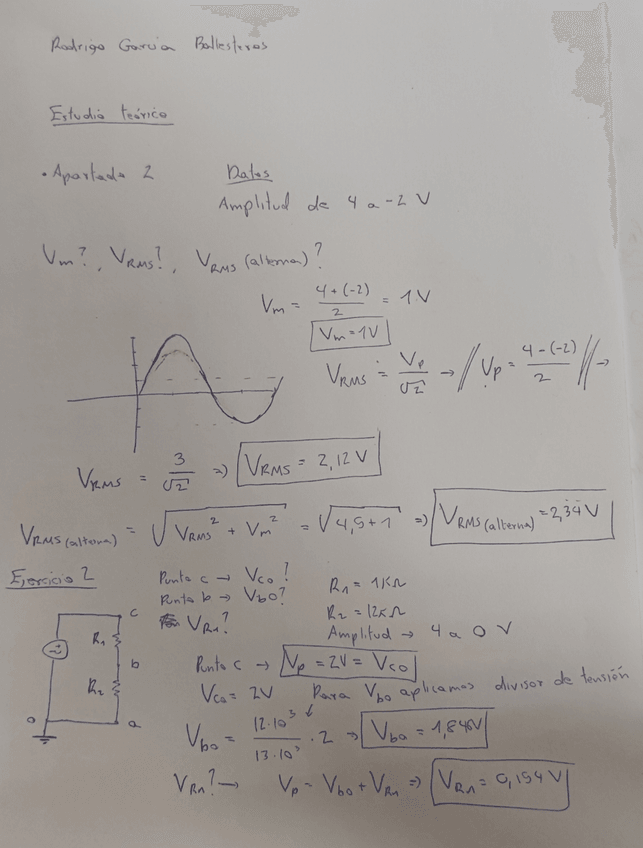 Rodrigo García Ballesteros
Estudio teórico
• Apartado 2 Datos
Amplitud de 4 a -2 V
Vm?, VRMS?, VRMS (alterna)?
Vm = 4 + (-2) / 2 = 1 V
Vm = 1V
VRMS = Vp / √2 → // Vp = 4 - (-2) / 2 // →
VRMS = 3 / √2 => VRMS = 2,12 V
VRMS (alterna) = √(VRMS² + Vm²) = √(4,5 + 1) => VRMS (alterna) = 2,34 V
Ejercicio 2
Punto c → Vco? R1 = 1KΩ
Punto b → Vbo? R2 = 12KΩ
VR1? Amplitud → 4 a 0 V
c
R1
b
R2
o a
Punto c → Vp = 2V = Vco
Vco = 2V Para Vbo aplicamos divisor de tensión
Vbo = 12·10³ / 13·10³ · 2 => Vbo = 1,846V
VR1? → Vp = Vbo + VR1 => VR1 = 0,154 V